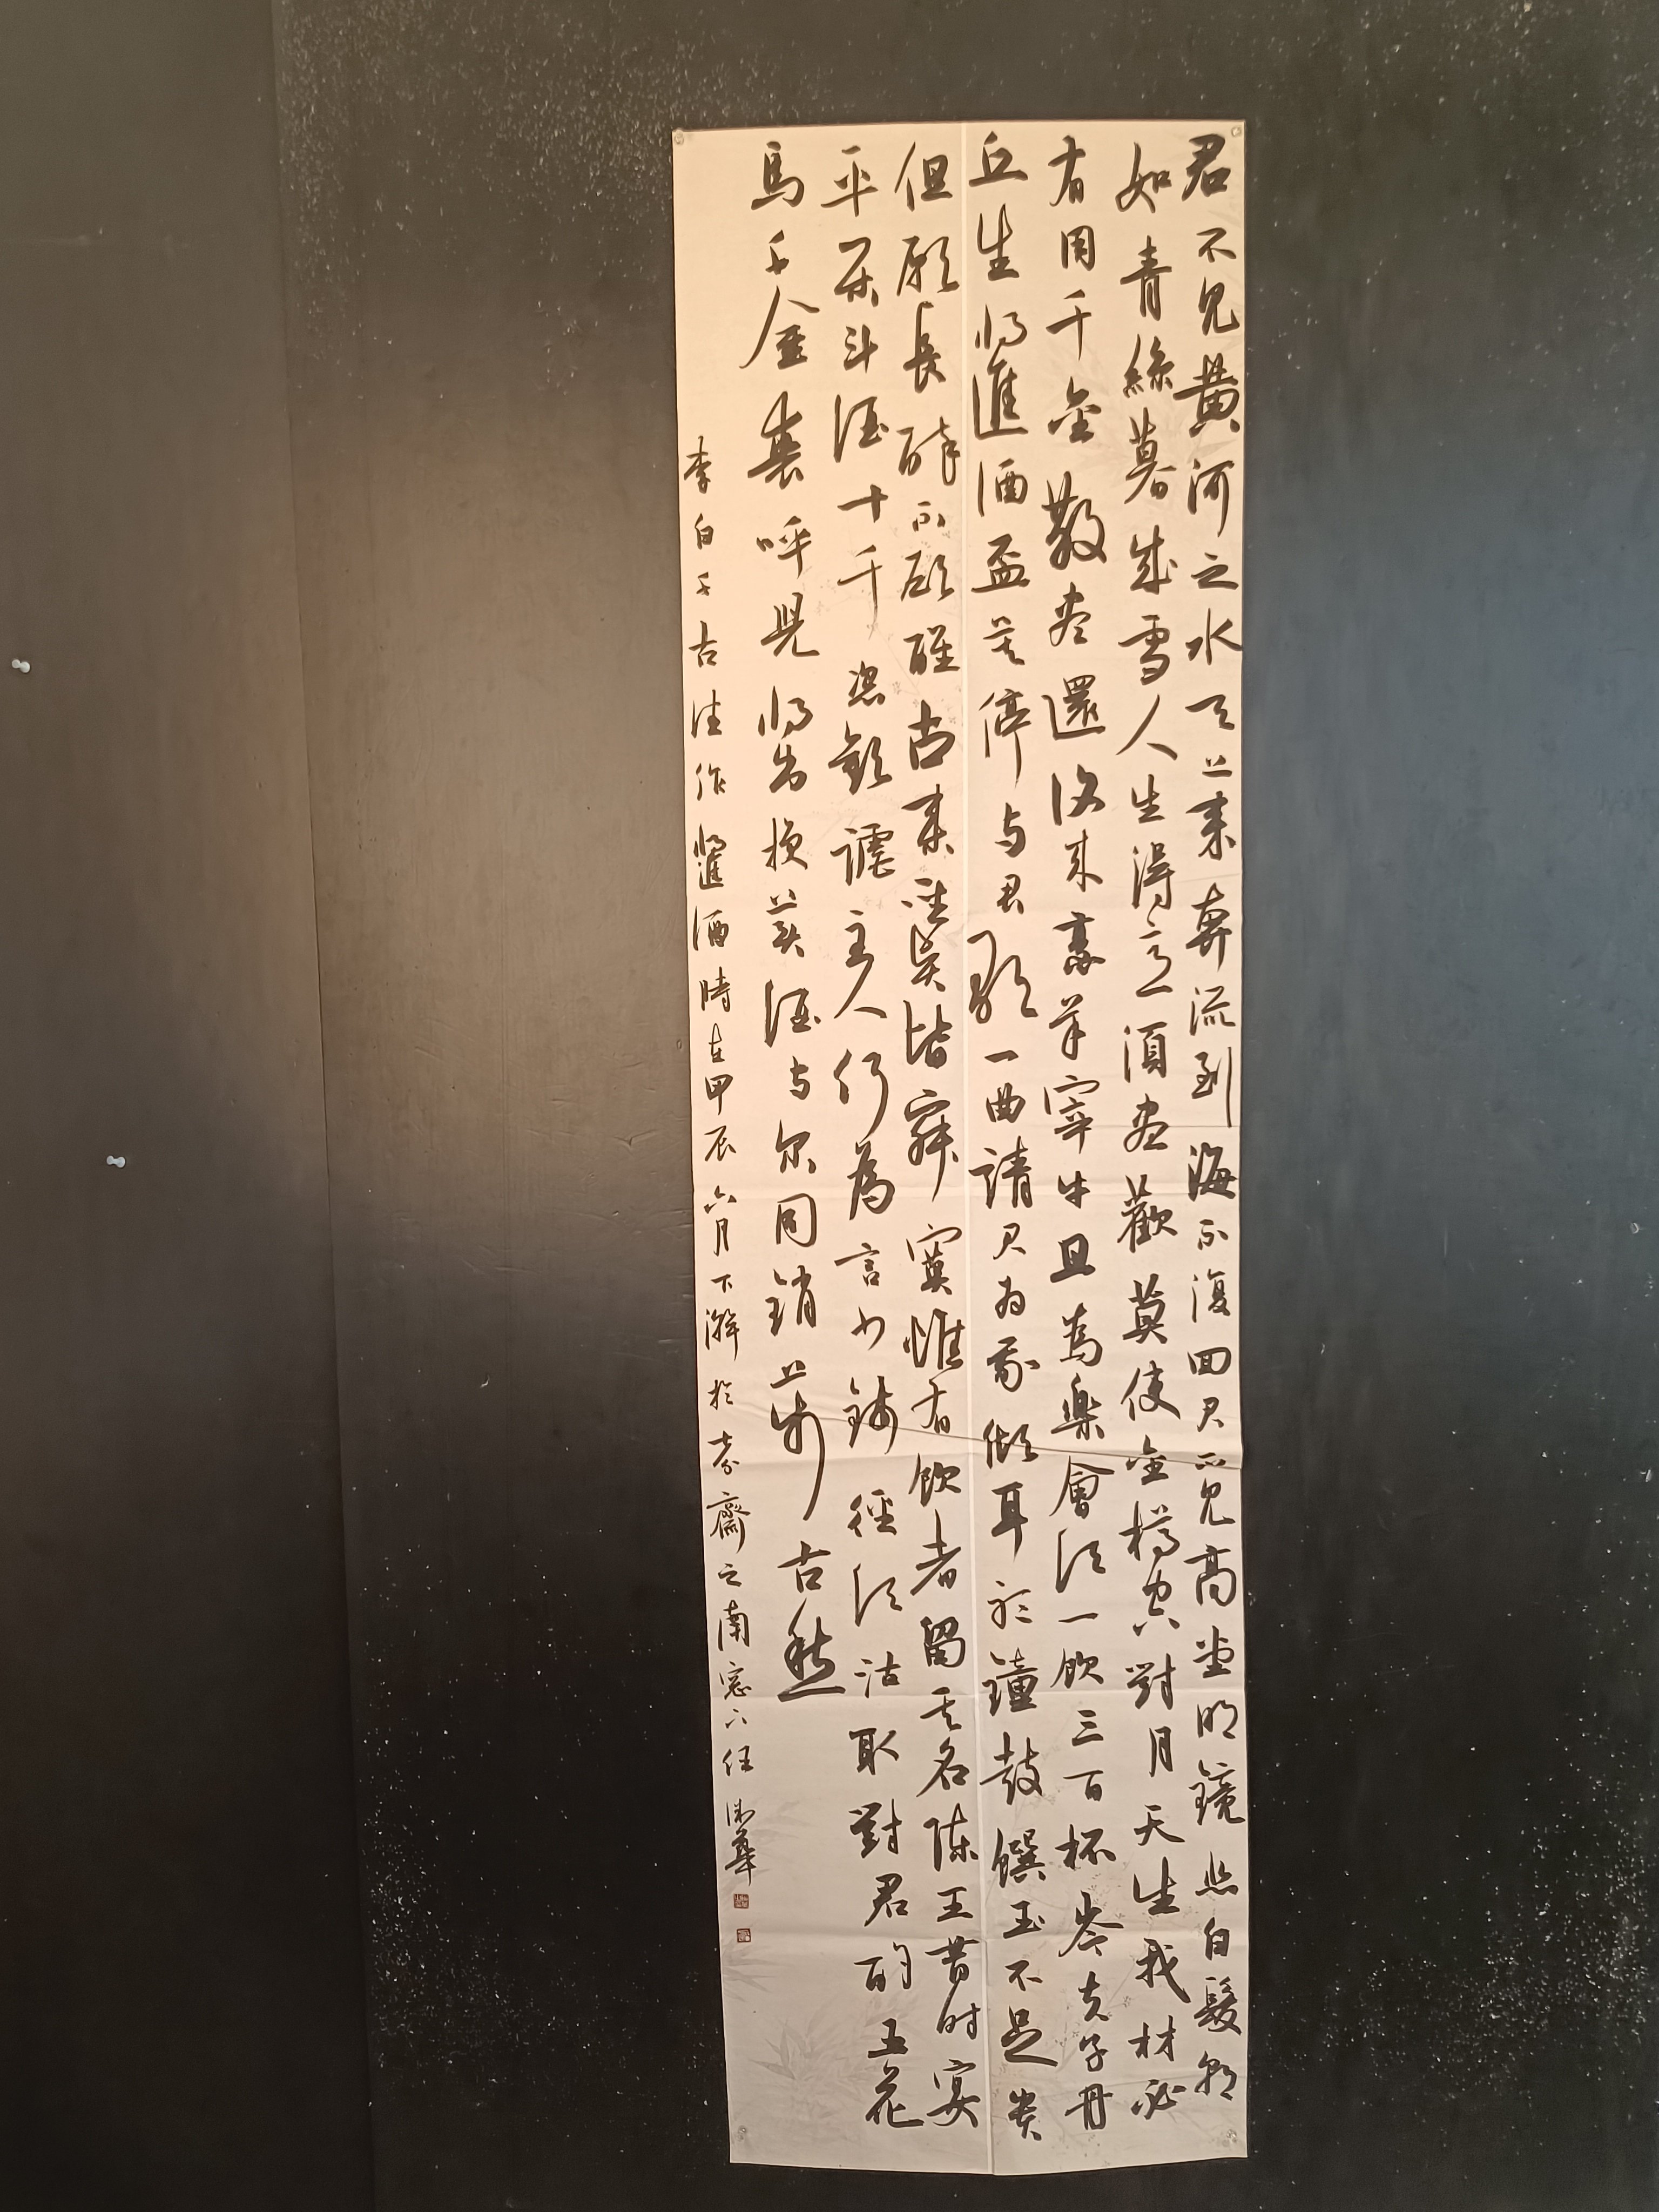 君不見黃河之水天上来奔流到海不復回君不見高堂明鏡悲白髮朝
如青絲暮成雪人生得意須盡歡莫使金樽空對月天生我材必
有用千金散盡還復来烹羊宰牛且為樂會須一飲三百杯岑夫子丹
丘生將進酒盃莫停与君歌一曲請君為我傾耳聽鐘鼓饌玉不足貴
但願長醉不願醒古来聖賢皆寂寞惟有飲者留其名陳王昔时宴
平樂斗酒十千恣歡謔主人何為言少錢徑須沽取對君酌五花
馬千金裘呼兒將出換美酒与尔同銷萬古愁
李白千古佳作將進酒時在甲辰六月下澣於芬齋之南窓下任華